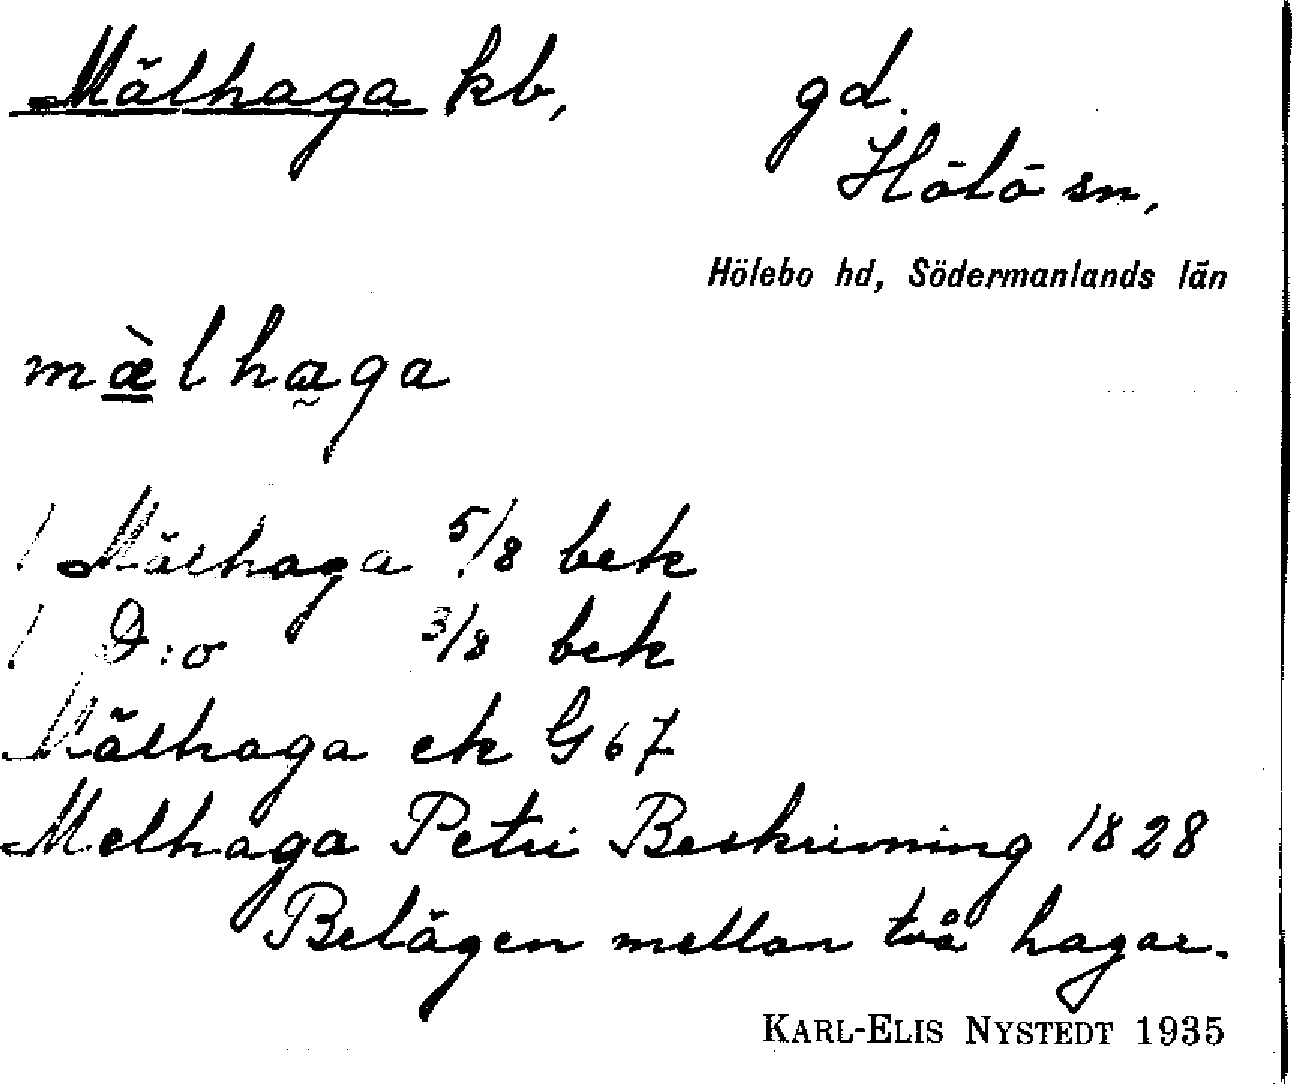 Mälhaga kb, gd.
Hölö sn,
Hölebo hd, Södermanlands län
mæ̀lhaga
1 Mälhaga 5/8 bek
1 D:o 3/8 bek
Mälhaga ek G 67
Melhaga Petri Beskrivning 1828
Belägen mellan två hagar.
KARL-ELIS NYSTEDT 1935